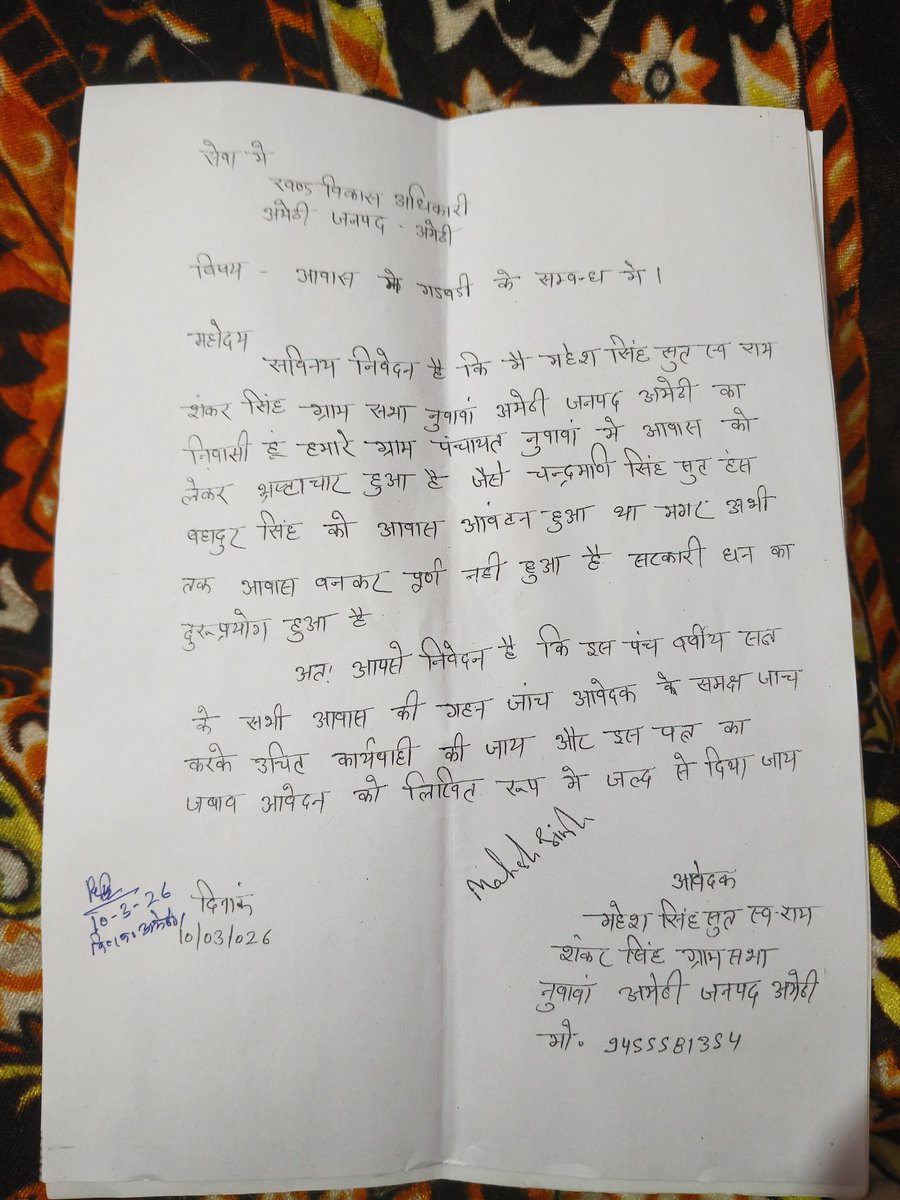 सेवा मे
खण्ड विकास अधिकारी
अमेठी जनपद - अमेठी
विषय - आवास मे गडवडी के सम्वन्ध मे ।
महोदय
सविनय निवेदन है कि मै महेश सिंह सुत स्व राम
शंकर सिंह ग्राम सभा नुवावां अमेठी जनपद अमेठी का
निवासी हूं हमारे ग्राम पंचायत नुवावां मे आवास को
लेकर भ्रष्टाचार हुआ है जैसे चन्द्रमणि सिंह सुत हंस
वहादुर सिंह को आवास आवंटन हुआ था मगर अभी
तक आवास वनकर पूर्ण नही हुआ है सरकारी धन का
दुरूप्रयोग हुआ है
अत! आपसे निवेदन है कि इस पंच वर्षीय सत्र
के सभी आवास की गहन जांच आवेदक के समक्ष जाच
करके उचित कार्यवाही की जाय और इस पत्र का
जवाव आवेदन को लिखित रूप मे जल्द से दिया जाय
Mahesh Singh
आवेदक
महेश सिंह सुत स्व. राम
शंकर सिंह ग्राम सभा
नुवावां अमेठी जनपद अमेठी
मो. 9455581354
दिनांक
10/03/026
10-3-26
अमेठी